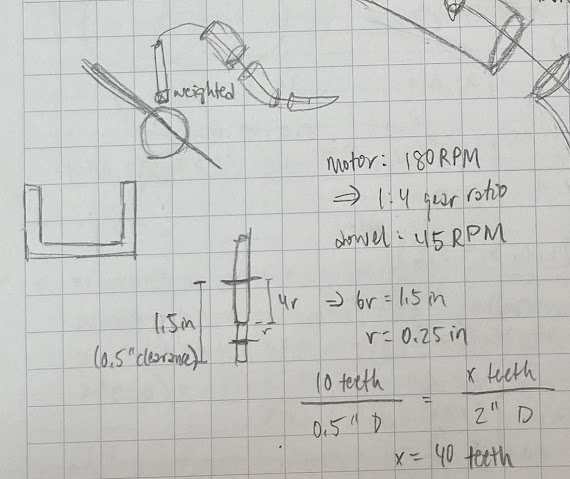 weighted
motor: 180 RPM
⇒ 1:4 gear ratio
dowel: 45 RPM
4r
r
1.5 in
(0.5" clearance)
⇒ 6r = 1.5 in
r = 0.25 in
10 teeth / 0.5" D = x teeth / 2" D
x = 40 teeth